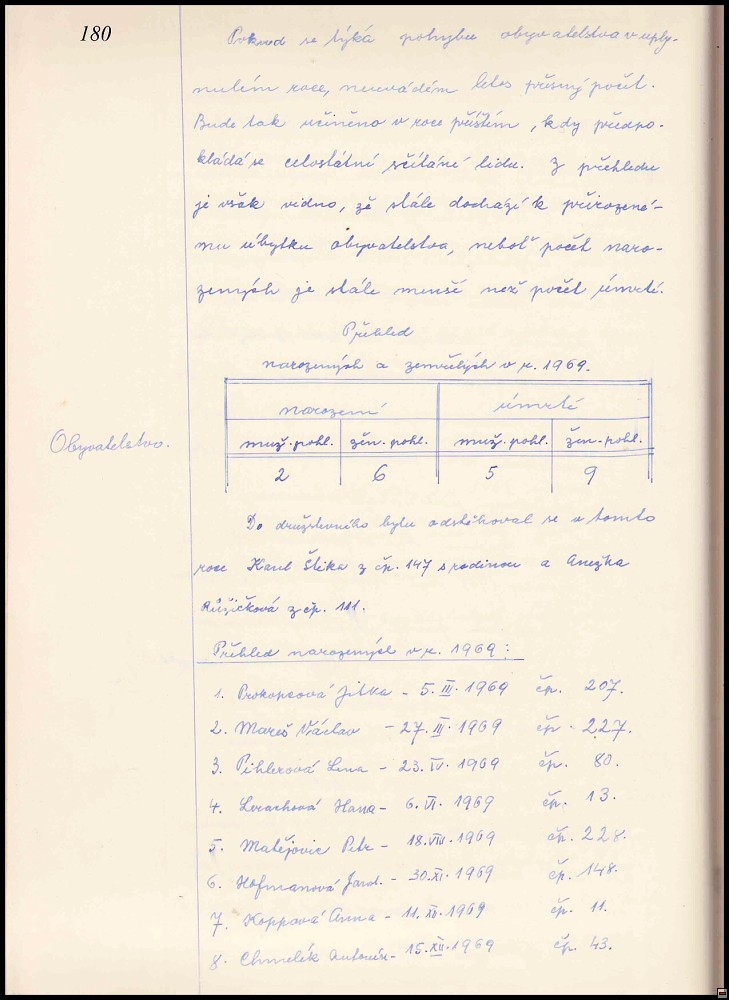 180
Pokud se týká pohybu obyvatelstva v uply-
nulém roce, neuvádím letos přesný počet.
Bude tak učiněno v roce příštím, kdy předpo-
kládá se celostátní sčítání lidu. Z přehledu
je však vidno, že stále dochází k přirozené-
mu úbytku obyvatelstva, neboť počet naro-
zených je stále menší než počet úmrtí.
Přehled
narozených a zemřelých v r. 1969.
narození úmrtí
Obyvatelstvo.
muž. pohl. žen. pohl. muž. pohl. žen. pohl.
2 6 5 9
Do družstevního bytu odstěhoval se v tomto
roce Karel Štika z čp. 147 s rodinou a Anežka
Růžičková z čp. 111.
Přehled narozených v r. 1969:
1. Prokopcová Jitka - 5. III. 1969 čp. 207.
2. Mareš Václav - 27. III. 1969 čp. 227.
3. Pihlerová Lena - 23. IV. 1969 čp. 80.
4. Hana - 6. VI. 1969 čp. 13.
5. Matějovic Petr - 18. VIII. 1969 čp. 228.
6. Hofmanová Jarol. - 30. XI. 1969 čp. 148.
7. Koppová Anna - 11. XII. 1969 čp. 11.
8. Chmelík Antonín - 15. XII. 1969 čp. 43.